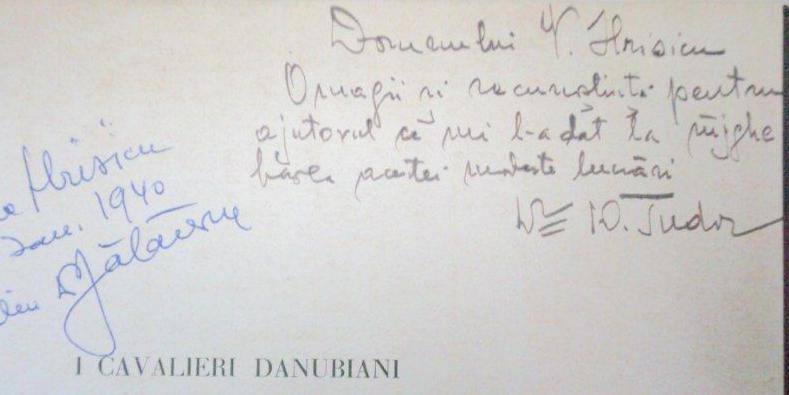 Domnului V. Hrisicu
Omagii si recunostinta pentru
ajutorul ce mi l-a dat la înjghe
barea acestei modeste lucrări
D. Tudor
Hrisicu
Ian. 1940
I CAVALIERI DANUBIANI